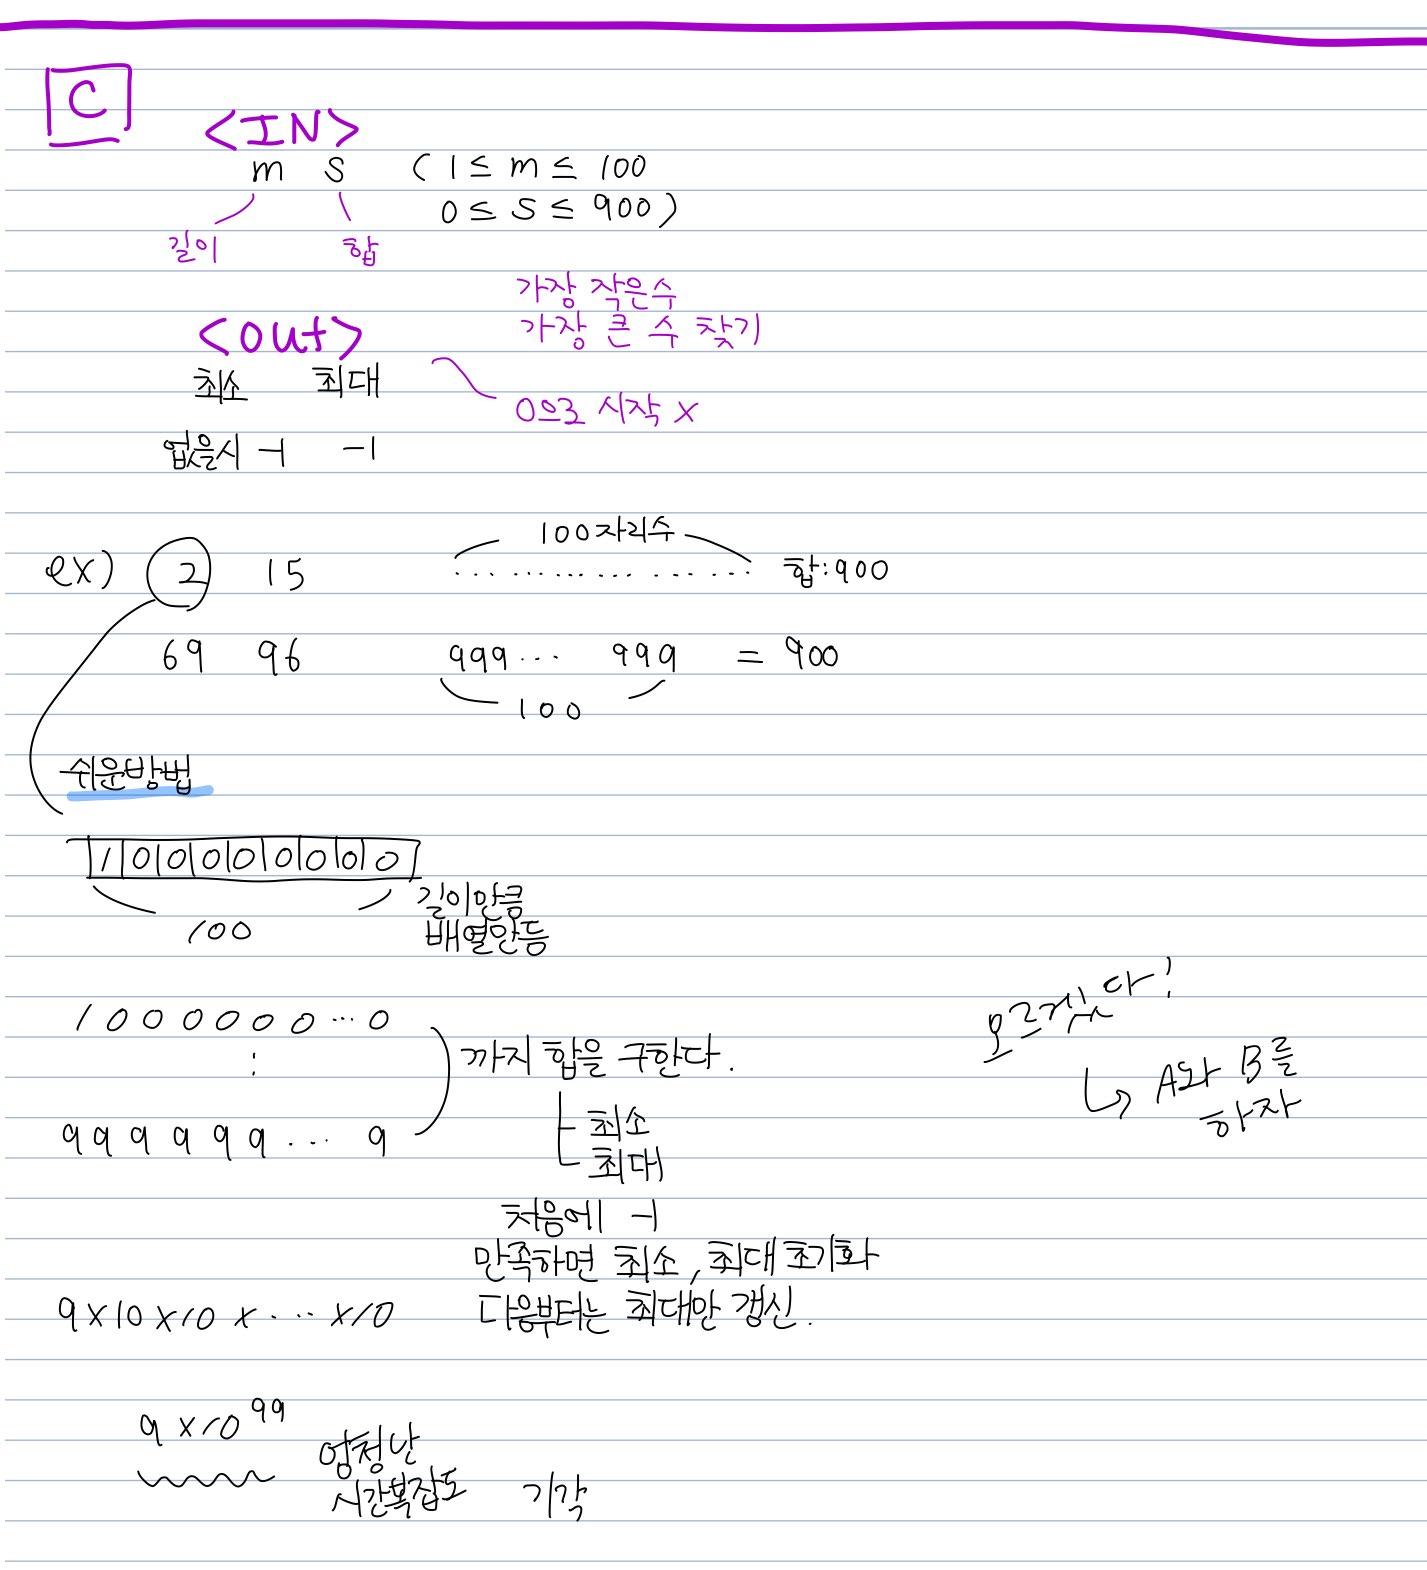 C
<IN>
m s (1 ≤ m ≤ 100
0 ≤ s ≤ 900)
길이 합
가장 작은수
가장 큰 수 찾기
<out>
최소 최대
0으로 시작 x
없을시 -1 -1
ex) 2 15
100자리수
.................. 합:900
69 96
999... 999 = 900
100
쉬운방법
1 0 0 0 0 0 0 0 0
100
길이만큼
배열만듬
1 0 0 0 0 0 0 ... 0
:
9 9 9 9 9 9 ... 9
까지 합을 구한다.
최소
최대
처음에 -1
만족하면 최소, 최대 초기화
다음부터는 최대만 갱신.
모르겠다!
A와 B를
하자
9x10x10x...x10
9x10^99
엄청난
시간복잡도 기각